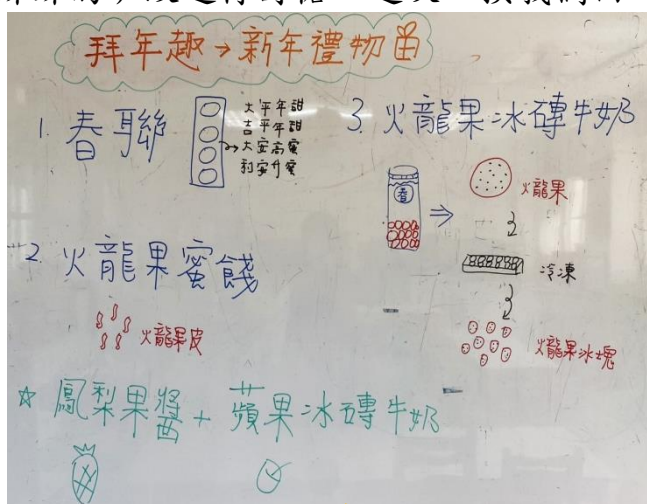 拜年趣→新年禮物
1. 春聯
大平年甜
吉平年甜
→大安高蜜
利安升蜜
2. 火龍果蜜餞
火龍果皮
3. 火龍果冰磚牛奶
春
⇒
火龍果
冷凍
火龍果冰塊
☆ 鳳梨果醬 + 蘋果冰磚牛奶